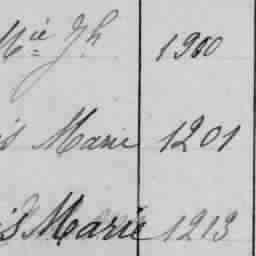 Mie Jh 1900
is Marie 1201
is Marie 1213